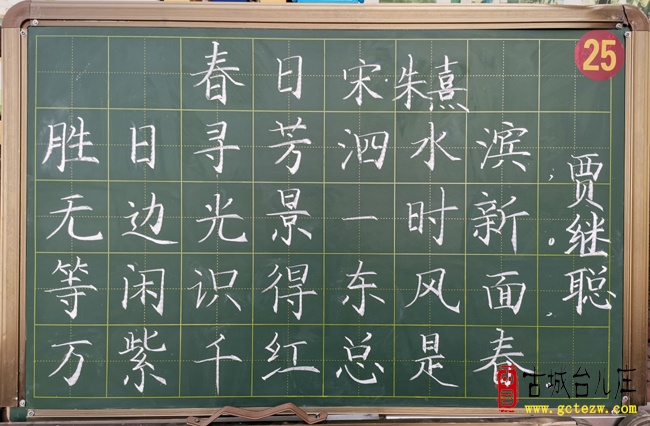 春日 宋·朱熹
25
胜日寻芳泗水滨，
无边光景一时新。
等闲识得东风面，
万紫千红总是春。
贾继聪
古城台儿庄
www.gctezw.com